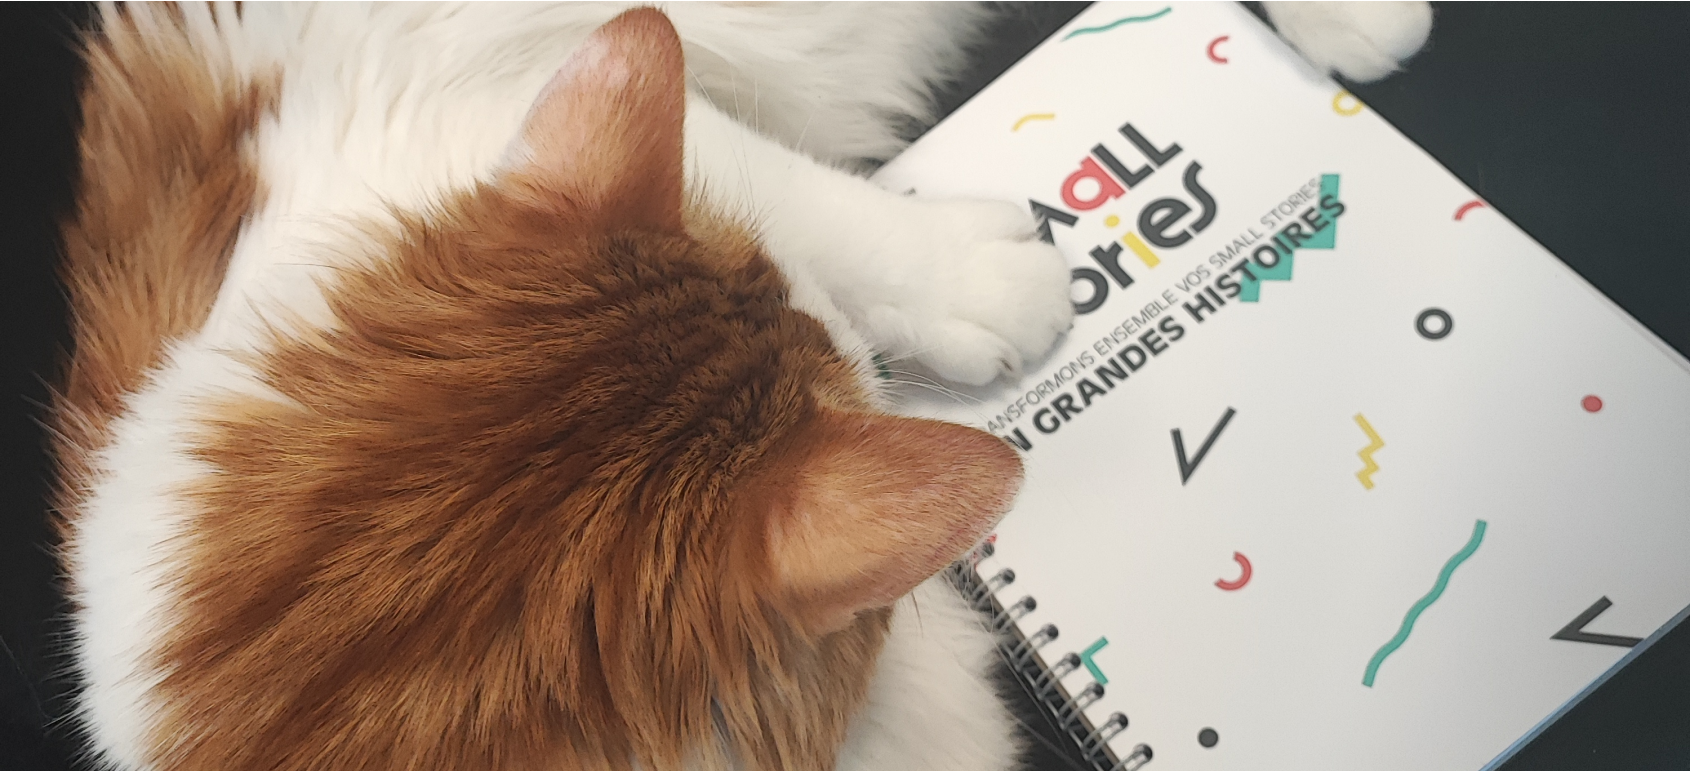 aLL
ories
ANSFORMONS ENSEMBLE VOS SMALL STORIES
N GRANDES HISTOIRES